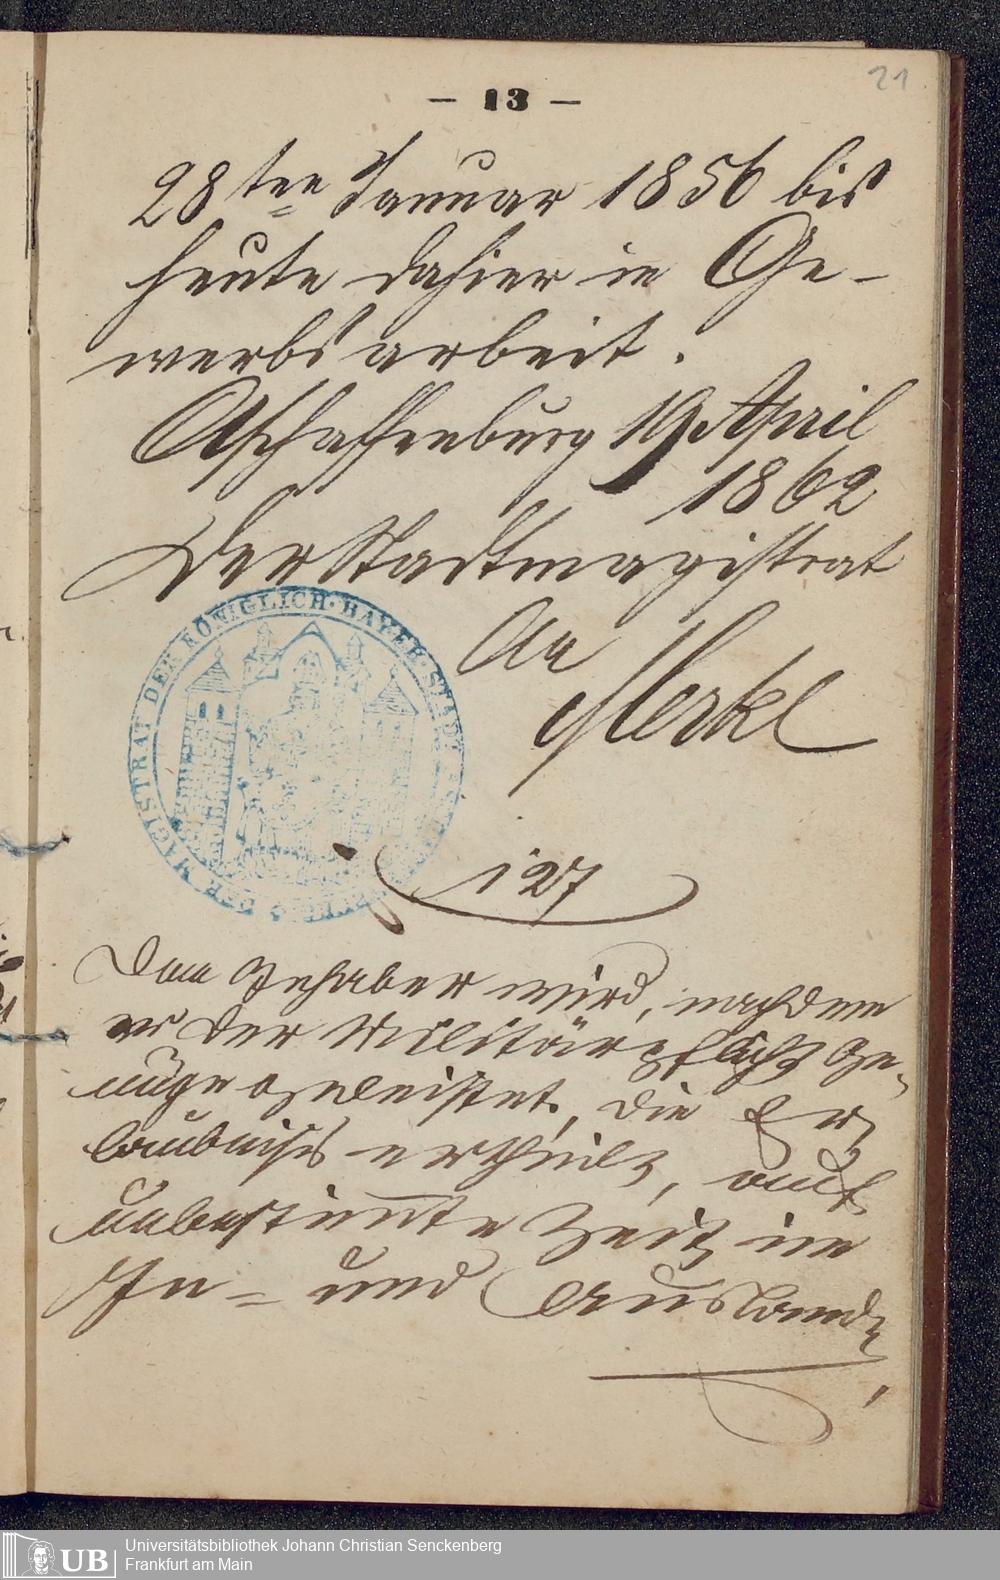 21
— 13 —
28ten Januar 1856 bis
heute dahier in Ge-
werbsarbeit.
Aschaffenburg 19 April
1862
Der Stadtmagistrat
Merkl
DER MAGISTRAT DER KÖNIGLICH. BAYER. STADT
127
Dem Inhaber wird, nachdem
er der Militärpflicht Ge-
nüge geleistet, die Er-
laubniß ertheilt, auf
unbestimmte Zeit im
In- und Auslande,
UB
Universitätsbibliothek Johann Christian Senckenberg
Frankfurt am Main